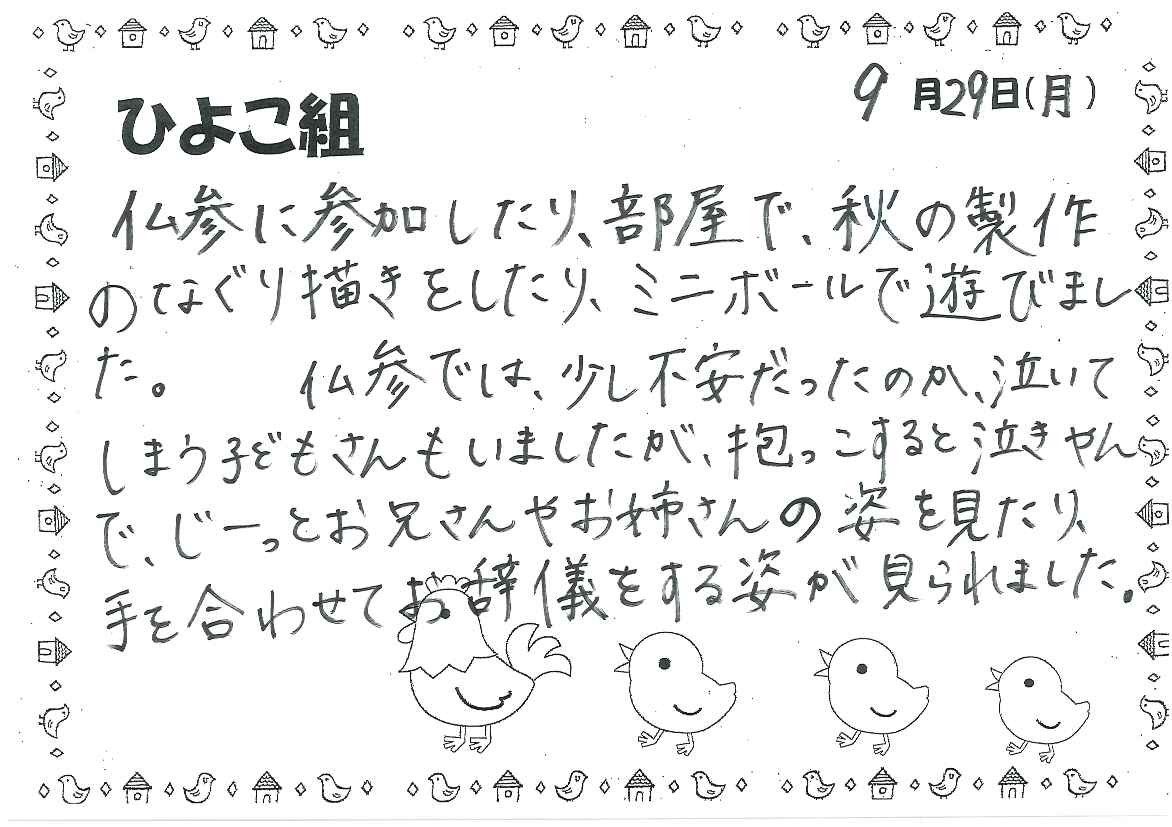 9月29日(月)
ひよこ組
仏参に参加したり、部屋で、秋の製作
のなぐり描きをしたり、ミニボールで遊びまし
た。　仏参では、少し不安だったのか、泣いて
しまう子どもさんもいましたが、抱っこすると泣きやん
で、じーっとお兄さんやお姉さんの姿を見たり、
手を合わせてお辞儀をする姿が見られました。